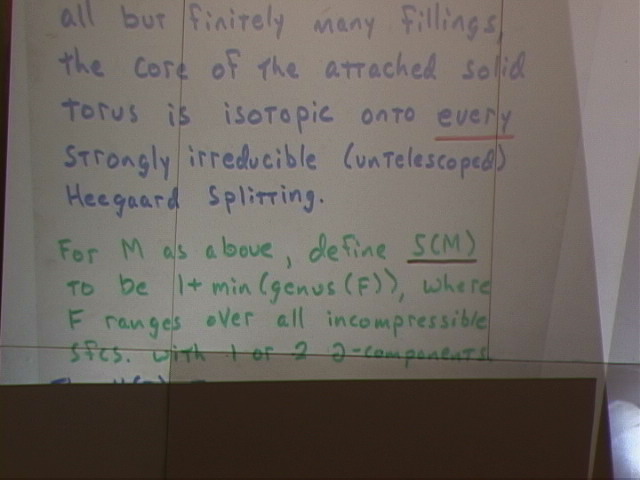 all but finitely many fillings,
the core of the attached solid
torus is isotopic onto every
strongly irreducible (untelescoped)
Heegaard splitting.
For M as above, define S(M)
to be 1+ min(genus(F)), where
F ranges over all incompressible
sfcs. with 1 or 2 ∂-components.